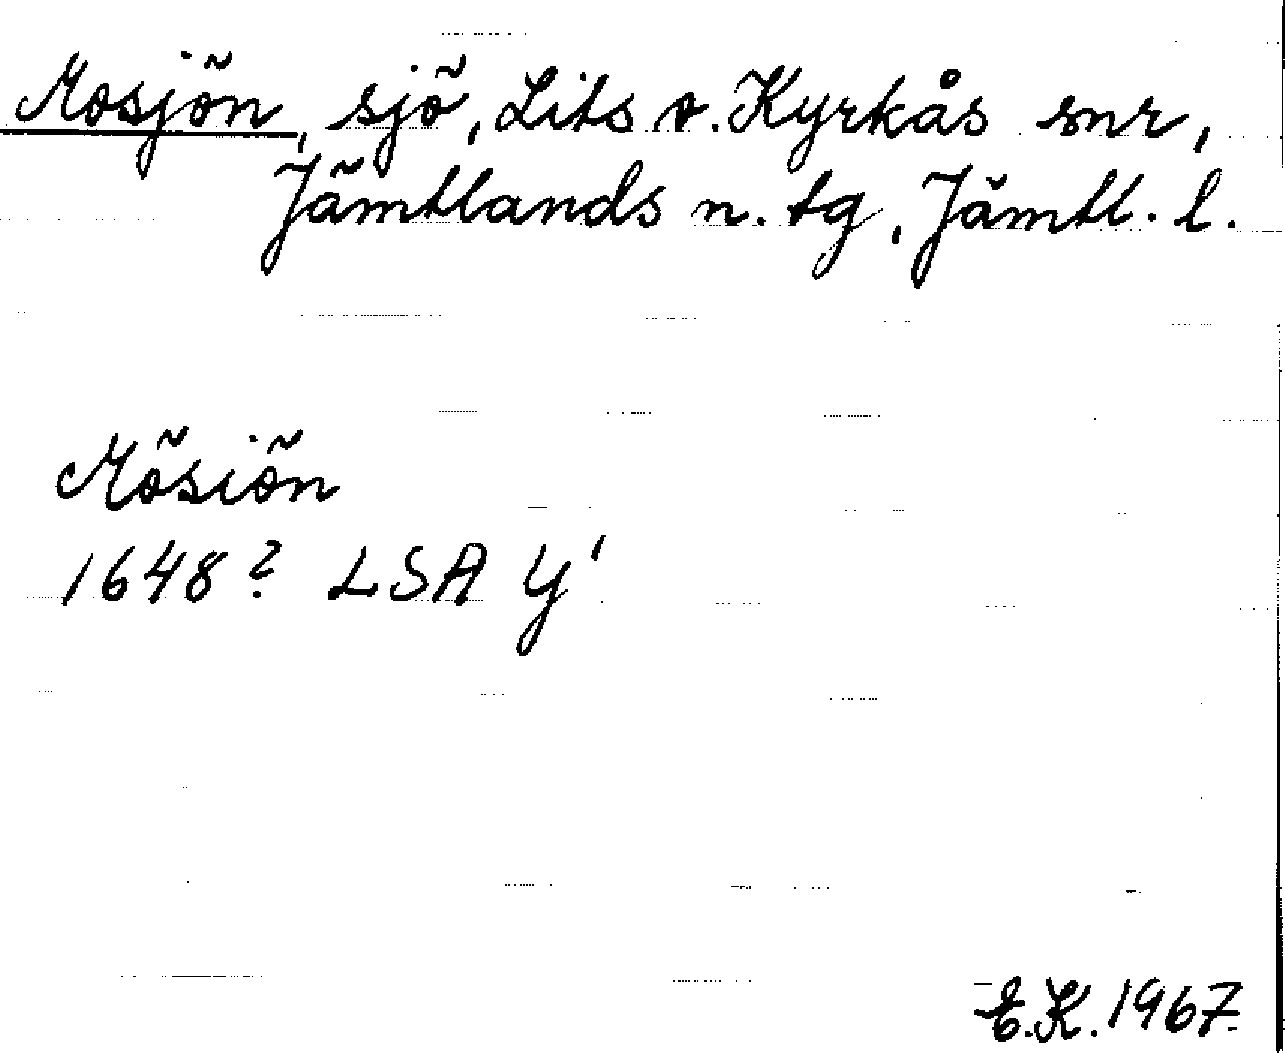 Mosjön, sjö, Lits o. Kyrkås snr,
Jämtlands n. tg, Jämtl. l.
Mösiön
1648? LSA Y'
E.K. 1967.